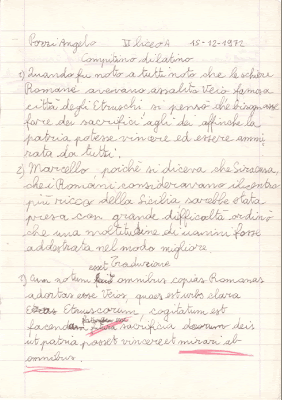 Porri Angelo II liceo A 15-12-1972
Compitino di latino
1) Quando fu noto a tutti noto che le schiere
Romane avevano assalito Veio famosa
città degli Etruschi si pensò che bisognasse
fare dei sacrifici agli dei affinché la
patria potesse vincere ed essere ammi
rata da tutti.
2) Marcello, poiché si diceva che Siracusa,
che i Romani consideravano il centro
più ricco della Sicilia sarebbe stata
presa con grande difficoltà ordinò
che una moltitudine di uomini fosse
addestrata nel modo migliore
esset Traduzione
1) Cum notum fuit omnibus copias Romanas
adortas esse Veios, quae est urbs clara
Etruscorum, cogitatum est
facenda sacrificia deorum deis
ut patria posset vincere et mirari ab
omnibus.